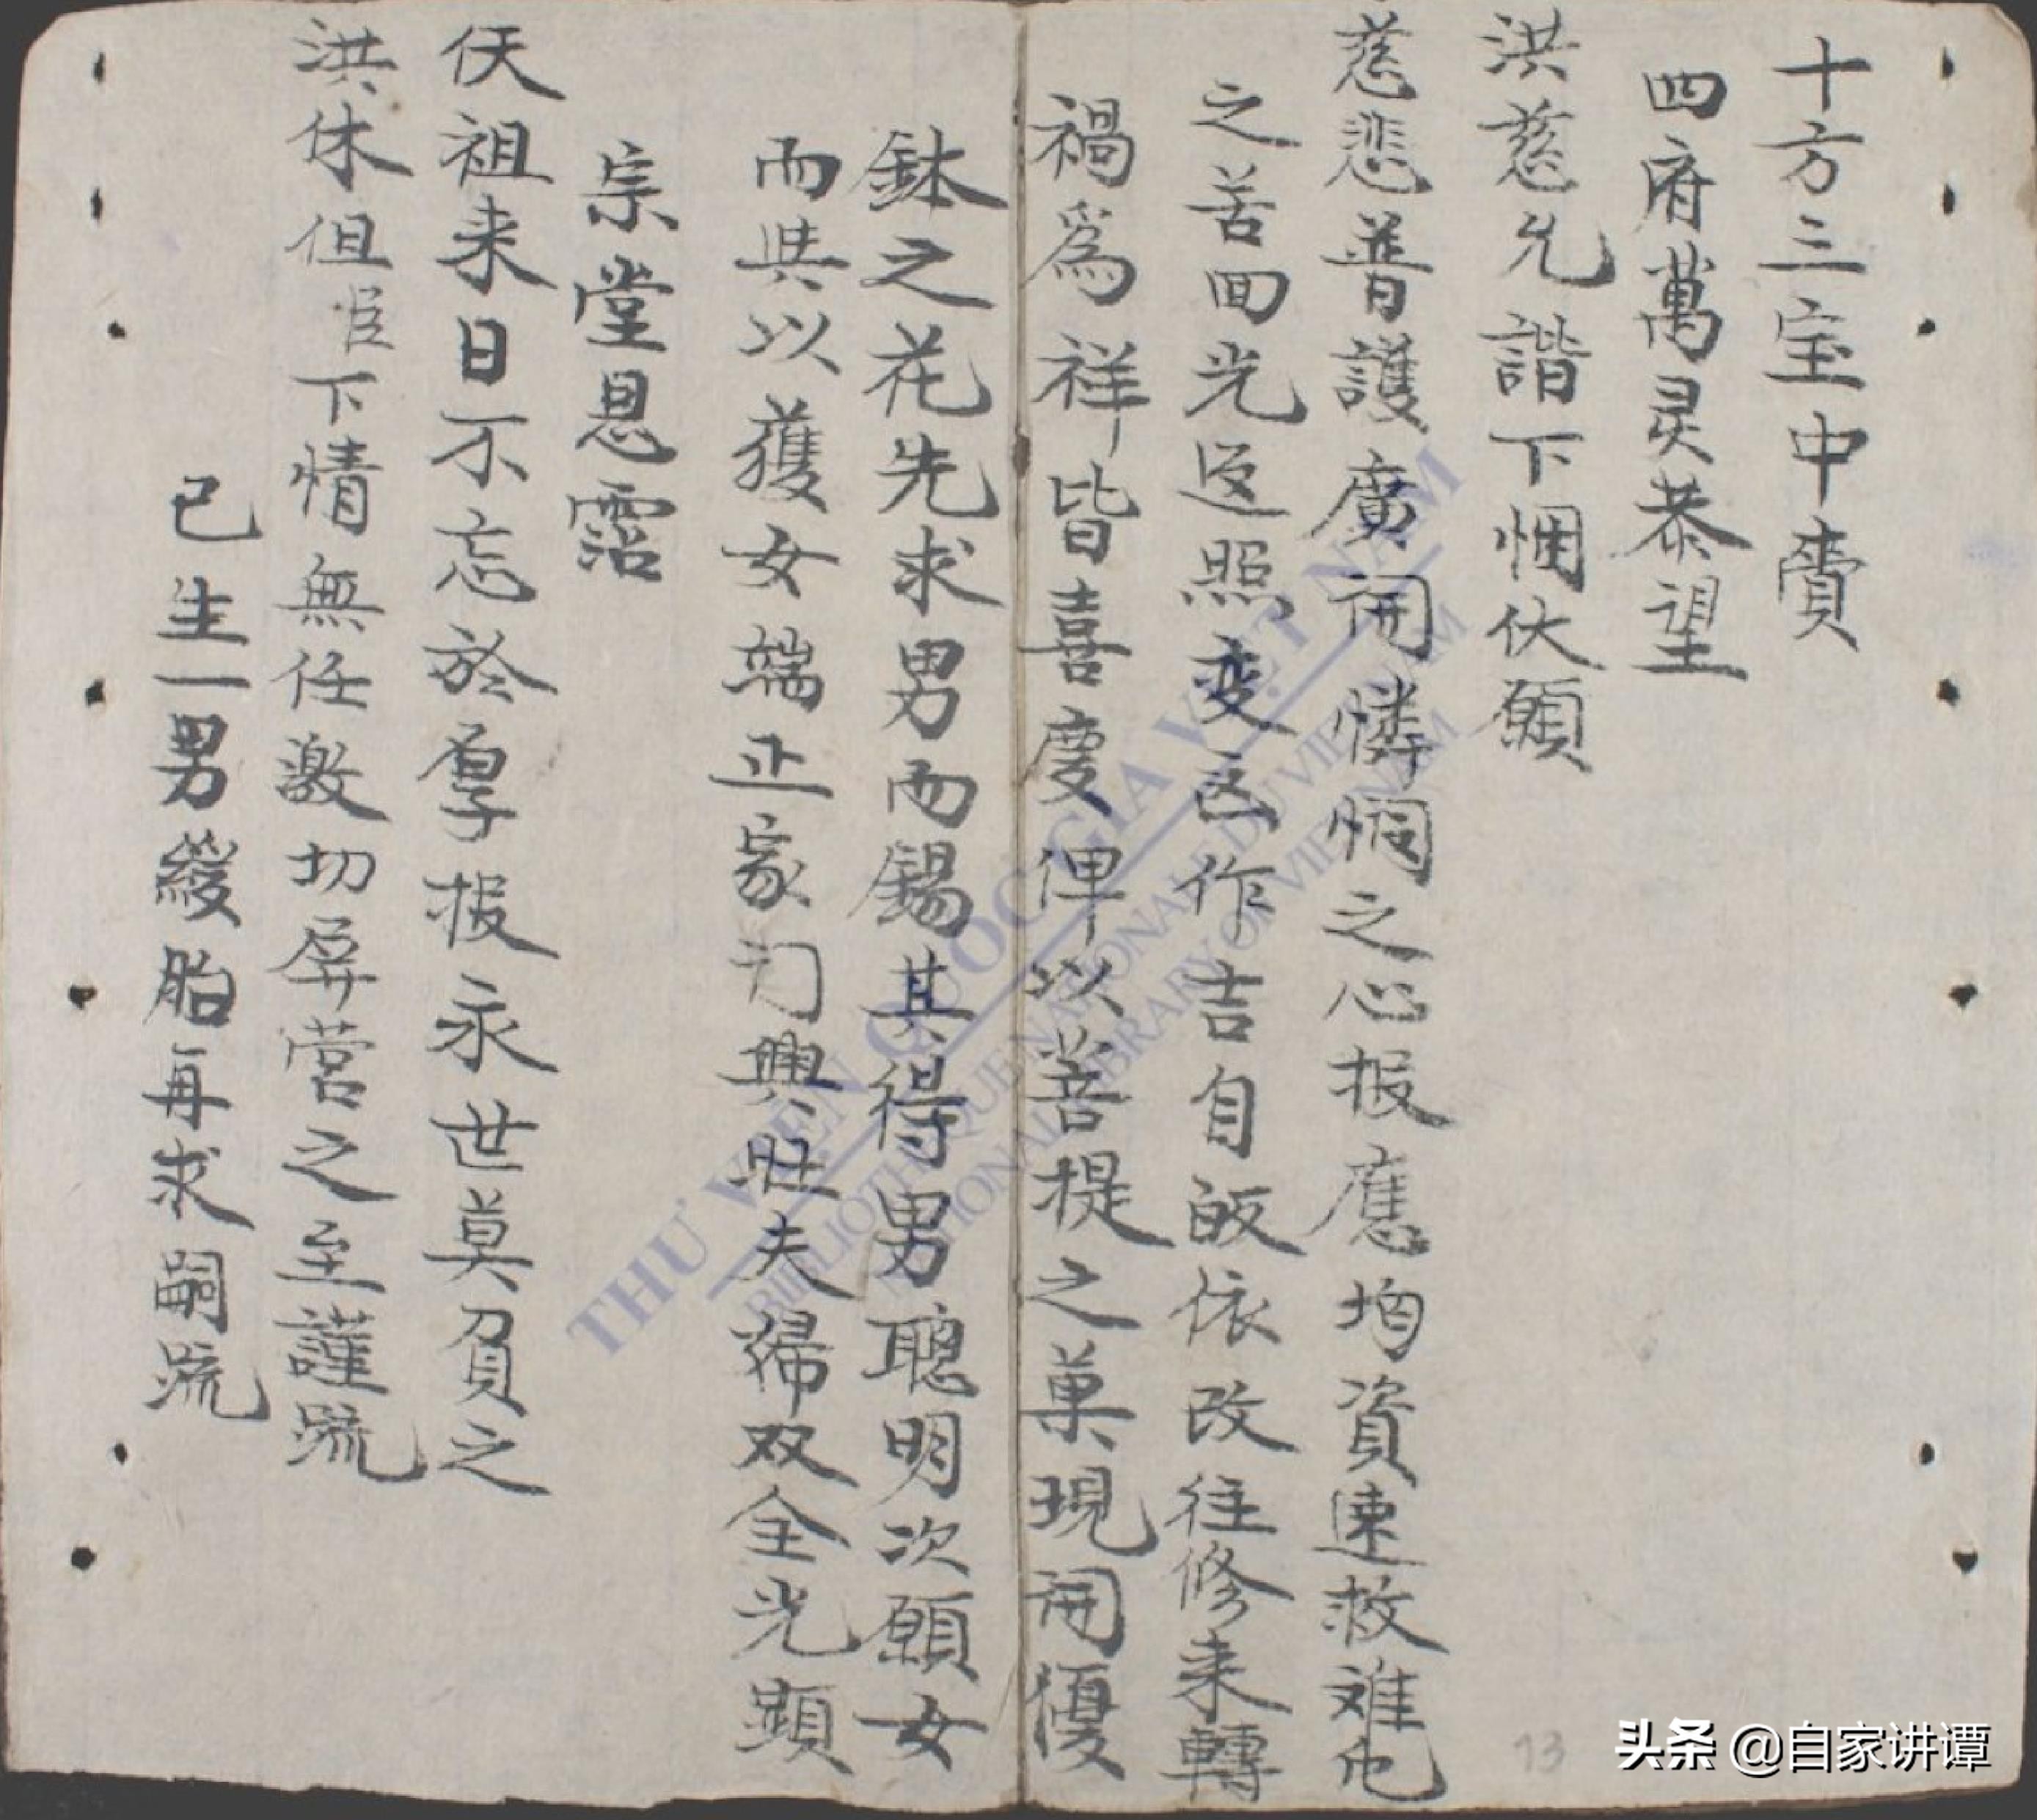 十方三宝中賫
四府萬灵恭望
洪慈允諧下悃伏願
慈悲普護廣開憐悯之心报應均資速救难乜
之苦回光返照变凶作吉自皈依改往修来轉
禍為祥皆喜慶俾以菩提之菓現開優
鉢之花先求男而錫其得男聰明次願女
而其以獲女端正家门興旺夫婦双全光顕
宗堂恩霑
仸祖来日不忘於厚报永世莫負之
洪休但臣下情無任激切屏营之至謹疏
已生一男緩胎再求嗣疏
THƯ VIỆN QUỐC GIA VIỆT NAM
BIBLIOTHÈQUE NATIONALE DU VIETNAM
NATIONAL LIBRARY OF VIETNAM
13
头条 @自家讲谭